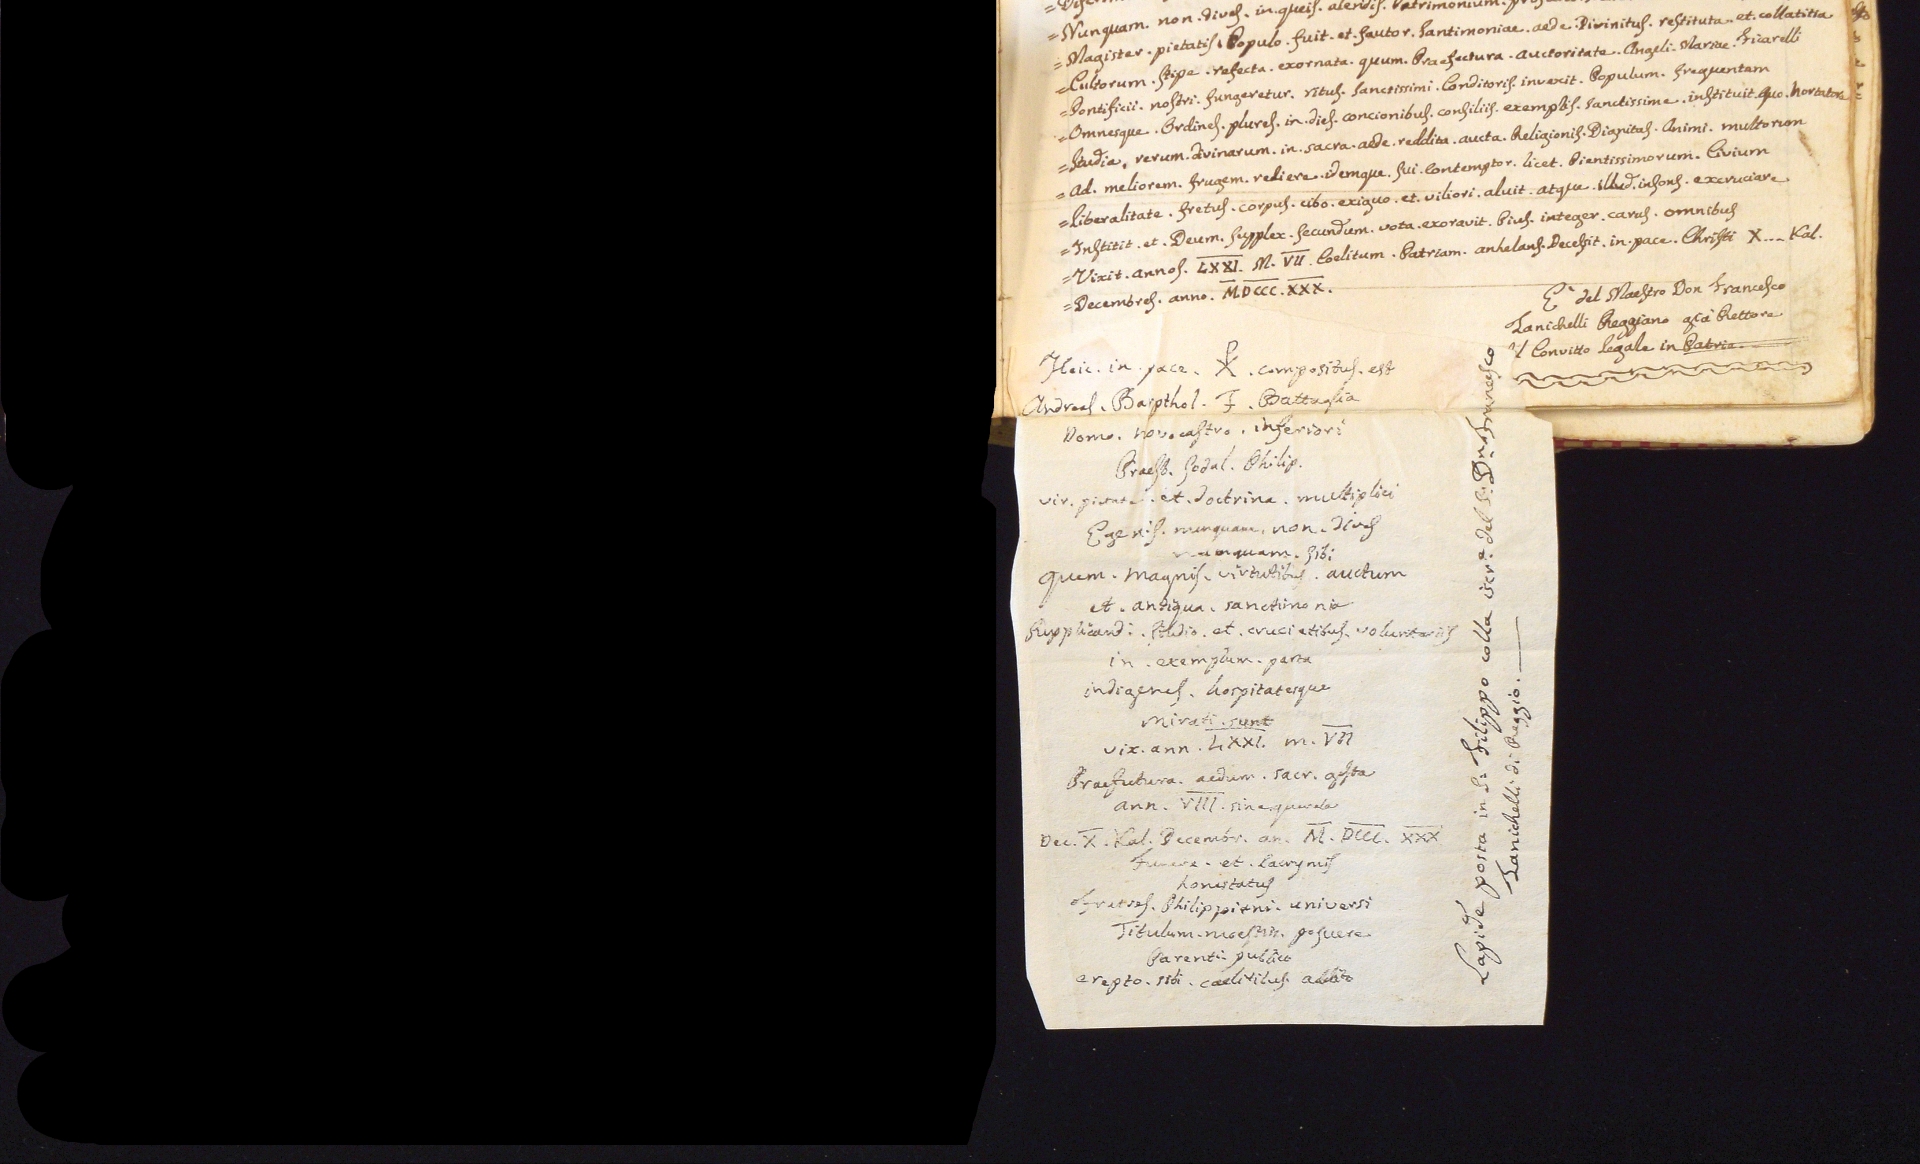 =Nunquam. non. dives. in. queis. alendis. Patrimonium.
=Magister. pietatis. Populo. fuit. et. fautor. Santimoniae. aede. Divinitus. restituta. et. collatitia
=Cultorum. stipe. refecta. exornata. quum. Praefectura. Auctoritate. Angeli. Mariae. Ficarelli
=Pontificii. nostri. fungeretur. ritus. Sanctissimi. Conditoris. invexit. Populum. frequentem
=Omnesque. Ordines. plures. in. dies. concionibus. consiliis. exemplis. sanctissime. instituit. Quo. hortatore
=Studia. rerum. divinarum. in. sacra. aede. reddita. aucta. Religionis. Dignitas. Animi. multorum
=Ad. meliorem. frugem. rediere. idemque. sui. Contemptor. licet. Pientissimorum. Civium
=Liberalitate. fretus. corpus. cibo. exiguo. et. viliori. aluit. atque. illud. insons. excruciare
=Institit. et. Deum. supplex. secundum. vota. exoravit. Pius. integer. carus. omnibus
=Vixit. annos. LXXI. M. VII. Coelitum. Patriam. anhelans. Decessit. in. pace. Christi X.... Kal.
=Decembres. anno. MDCCC.XXX.
E' del Maestro Don Francesco
Zanichelli Reggiano già Rettore
'l Convitto legale in Patria.
Heic. in. pace. ☧. compositus. est
Andreas. Barpthol. F. Battaglia
Domo. novocastro. inferiori
Praesb. Sodal. Philip.
vir. pietate. et. doctrina. multiplici
Egenis. nunquam. non. dives
nunquam. sibi
quem. magnis. virtutibus. auctum
et. antiqua. sanctimonia
Supplicandi. studio. et. cruciatibus. voluntariis
in. exemplum. parta
indigenes. hospitatesque
mirati. sunt
vix. ann. LXXI. m. VII
Praefutura. aedum. sacr. gesta
ann. VIII. sine querela
Dec. X. Kal. Decembr. an. M. DCCC. XXX
Funere. et. lacrymis
honestatus
Fratres. Philippiani. universi
Titulum. moestiss. posuere
Parenti. publico
erepto. sibi. caelitibus. addito
Lapide posta in S: Filippo colla iscr.e del S: Dn. Francesco
Zanichelli di Reggio.